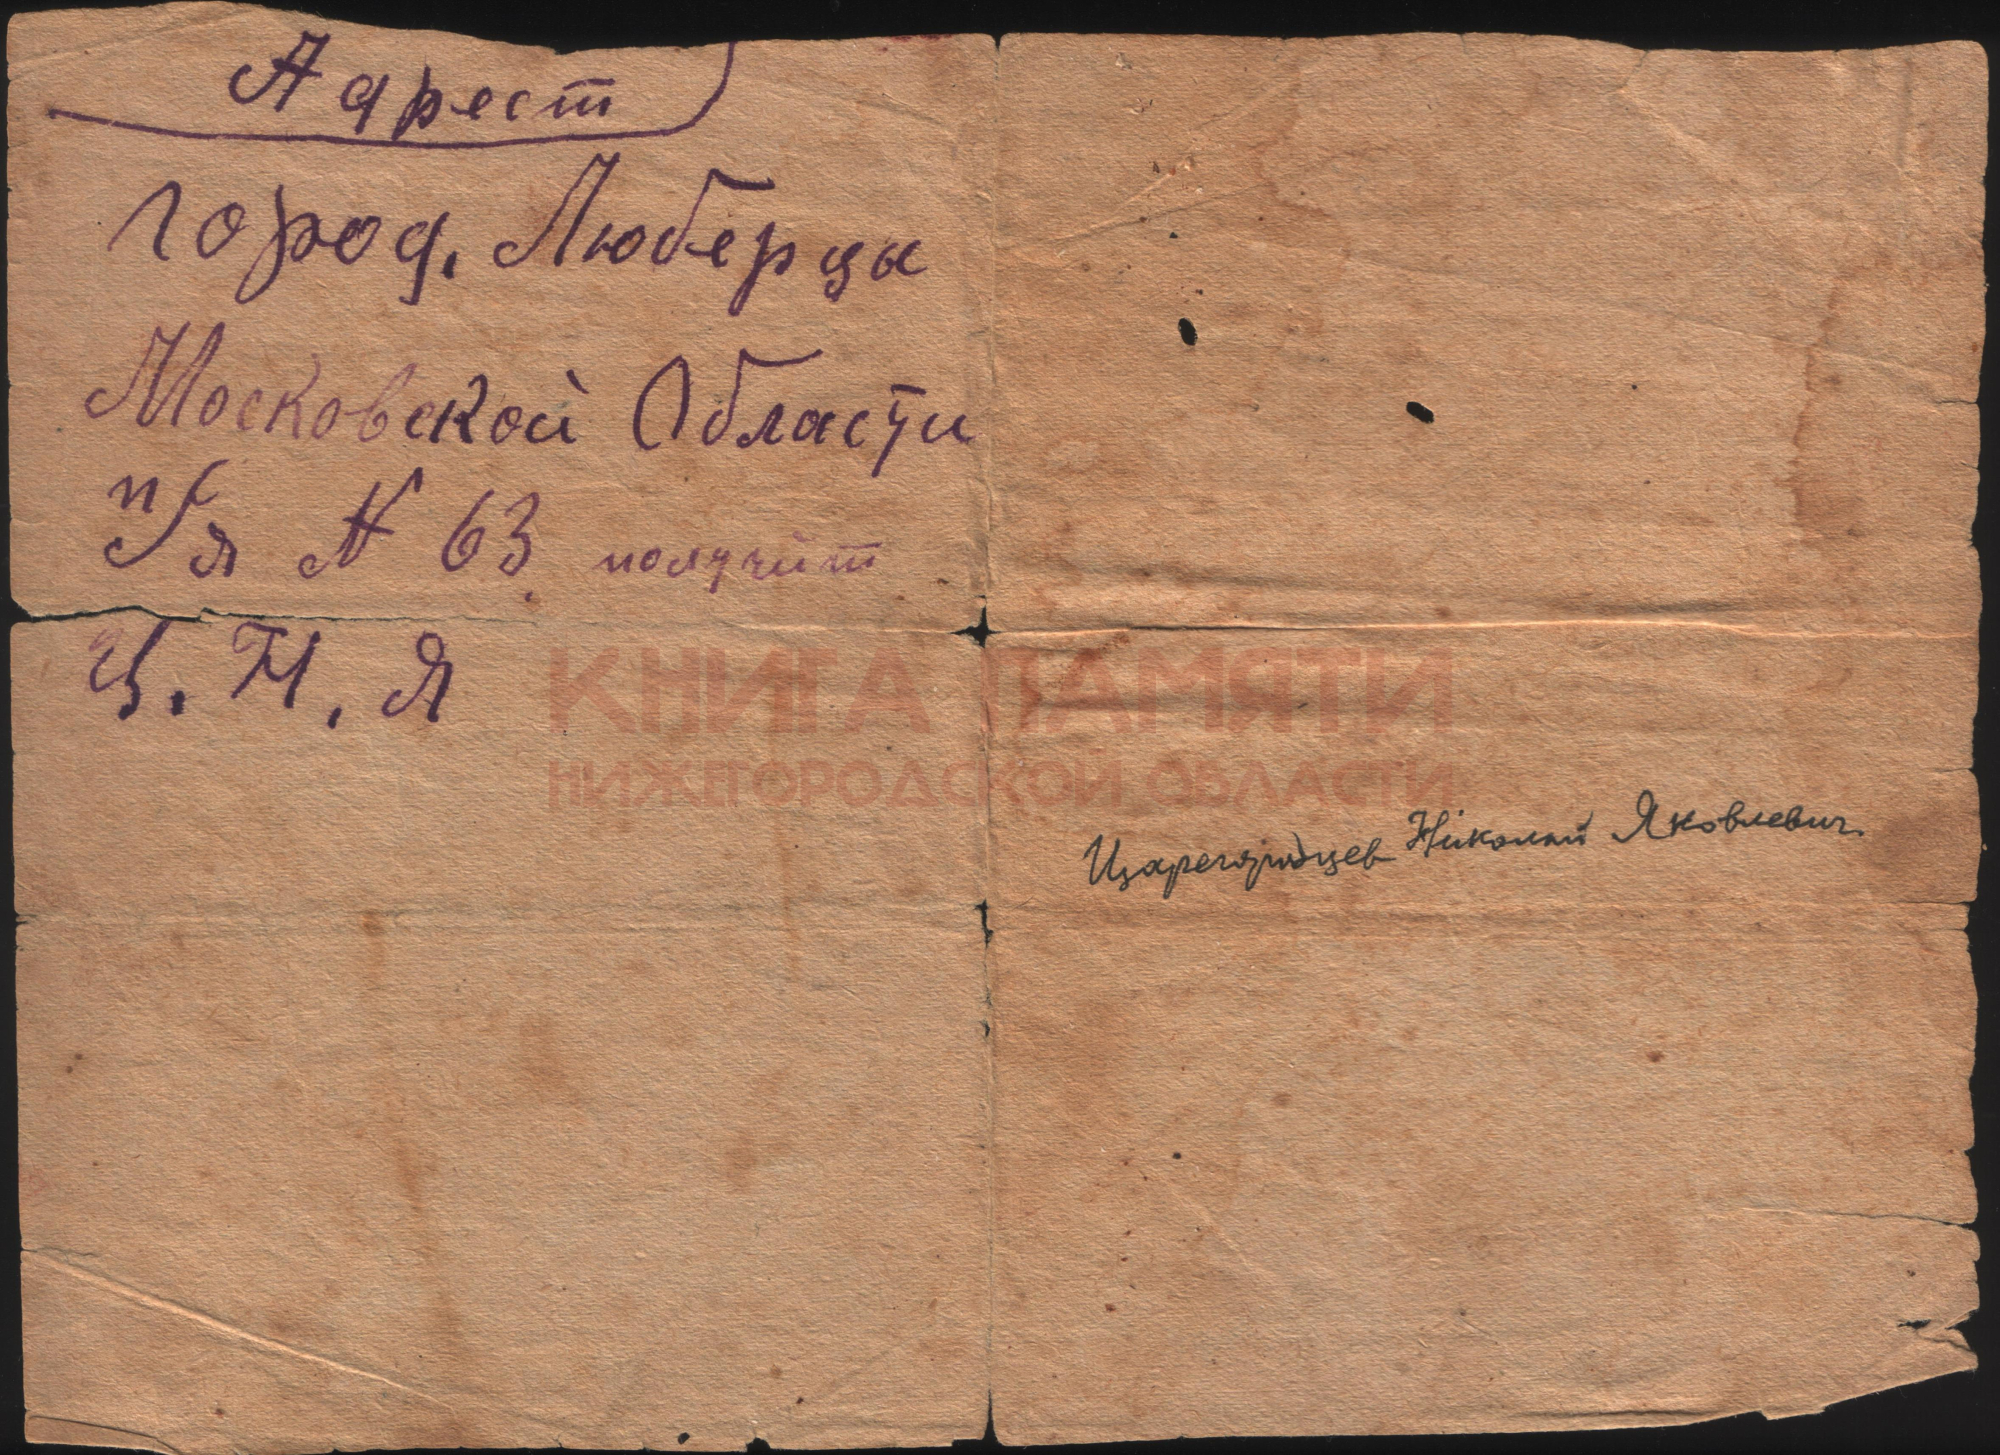 Адрест
город. Люберцы
Московской Области
п/я N 63 получит
Ц. Н. Я
КНИГА ПАМЯТИ
НИЖЕГОРОДСКОЙ ОБЛАСТИ
Царегородцев Николай Яковлевич